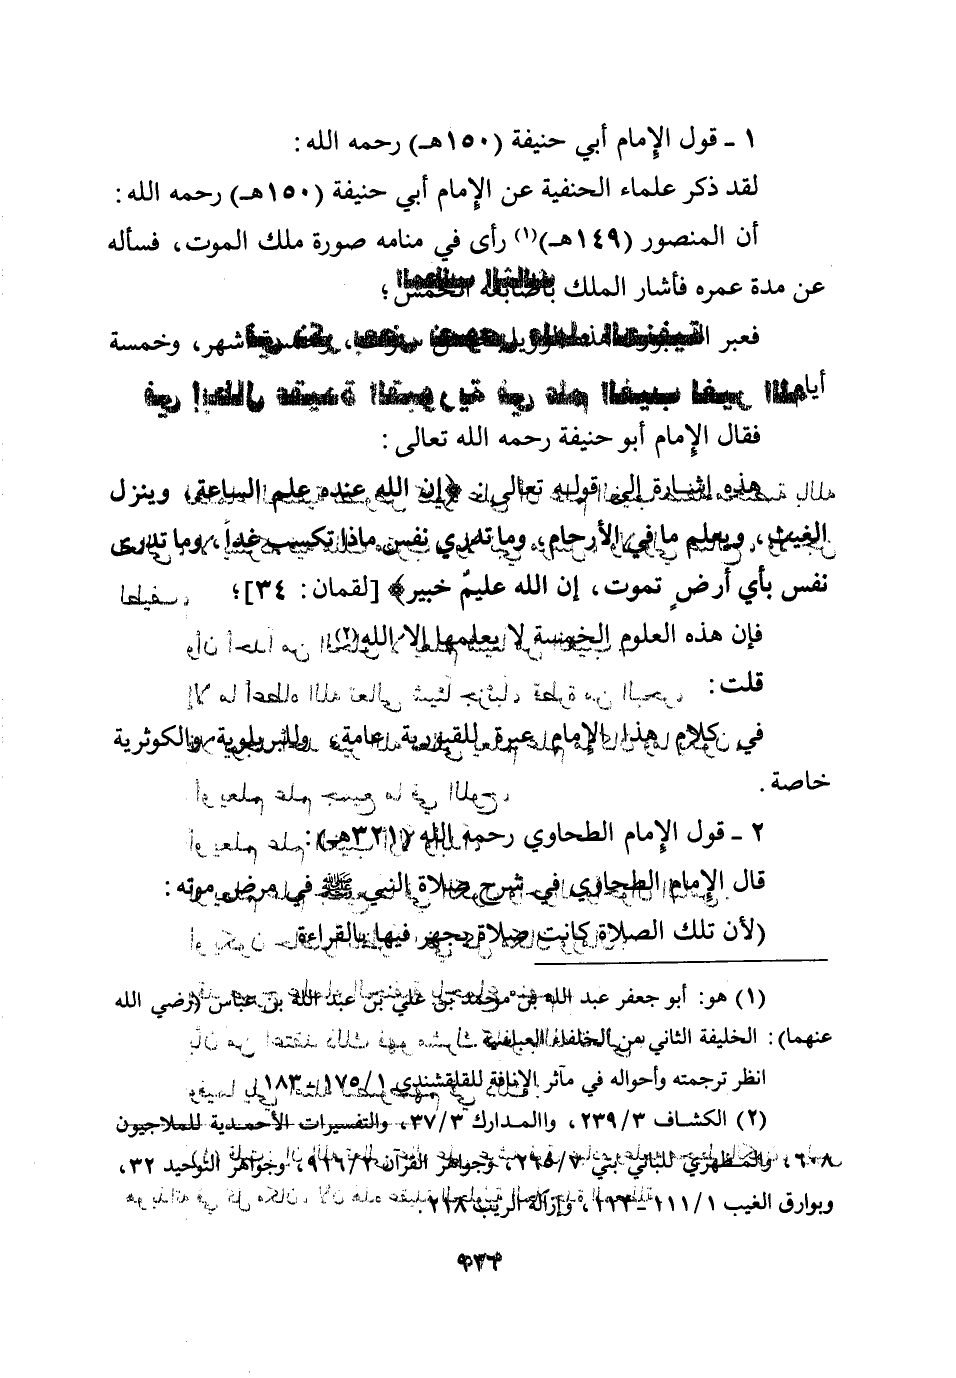 ١ ـ قول الإمام أبي حنيفة (١٥٠هـ) رحمه الله:
لقد ذكر علماء الحنفية عن الإمام أبي حنيفة (١٥٠هـ) رحمه الله:
أن المنصور (١٤٩هـ)(١) رأى في منامه صورة ملك الموت، فسأله
عن مدة عمره فأشار الملك بأصابعه الخمس؛
فعبر أشهر، وخمسة
أيام
فقال الإمام أبو حنيفة رحمه الله تعالى:
هذه إشارة إلى قوله تعالى: ﴿إن الله عنده علم الساعة، وينزل
الغيث، ويعلم ما في الأرحام، وما تدري نفس ماذا تكسب غداً، وما تدرى
نفس بأي أرضٍ تموت، إن الله عليمٌ خبير﴾ [لقمان: ٣٤]؛
فإن هذه العلوم الخمسة لا يعلمها إلا الله(٢).
قلت:
في كلام هذا الإمام عبرة للقبورية عامة، وللبريلوية والكوثرية
خاصة.
٢ ـ قول الإمام الطحاوي رحمه الله (٣٢١هـ):
قال الإمام الطحاوي في شرح صلاة النبي ﷺ في مرض موته:
(لأن تلك الصلاة كانت صلاة يجهر فيها بالقراءة
(١) هو: أبو جعفر عبد الله بن محمد بن علي بن عبد الله بن عباس (رضي الله
عنهما): الخليفة الثاني من الخلفاء العباسية.
انظر ترجمته وأحواله في مآثر الإنافة للقلقشندي ١/١٧٥ـ١٨٣.
(٢) الكشاف ٣/٢٣٩، واالمدارك ٣/٣٧، والتفسيرات الأحمدية للملاجيون
٦٠٨، والمظهري للباني بتي ٧/٢٦٥، وجواهر القرآن ٢/٩١٦، وجواهر التوحيد ٣٢،
وبوارق الغيب ١/١١١ـ، وإزالة الريب